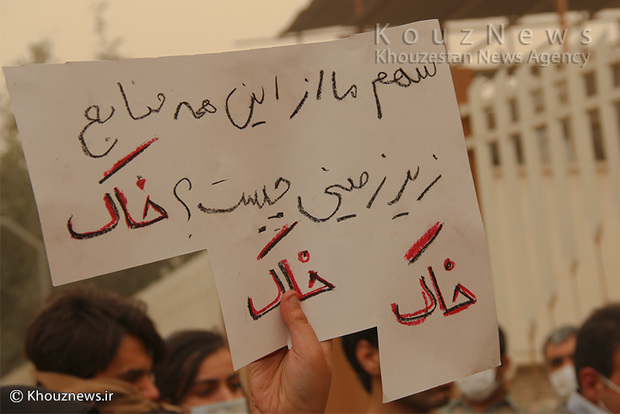 KouzNews
Khouzestan News Agency
سهم ما از این همه منابع
زیرزمینی چیست؟ خاک
خاک خاک
© Khouznews.ir